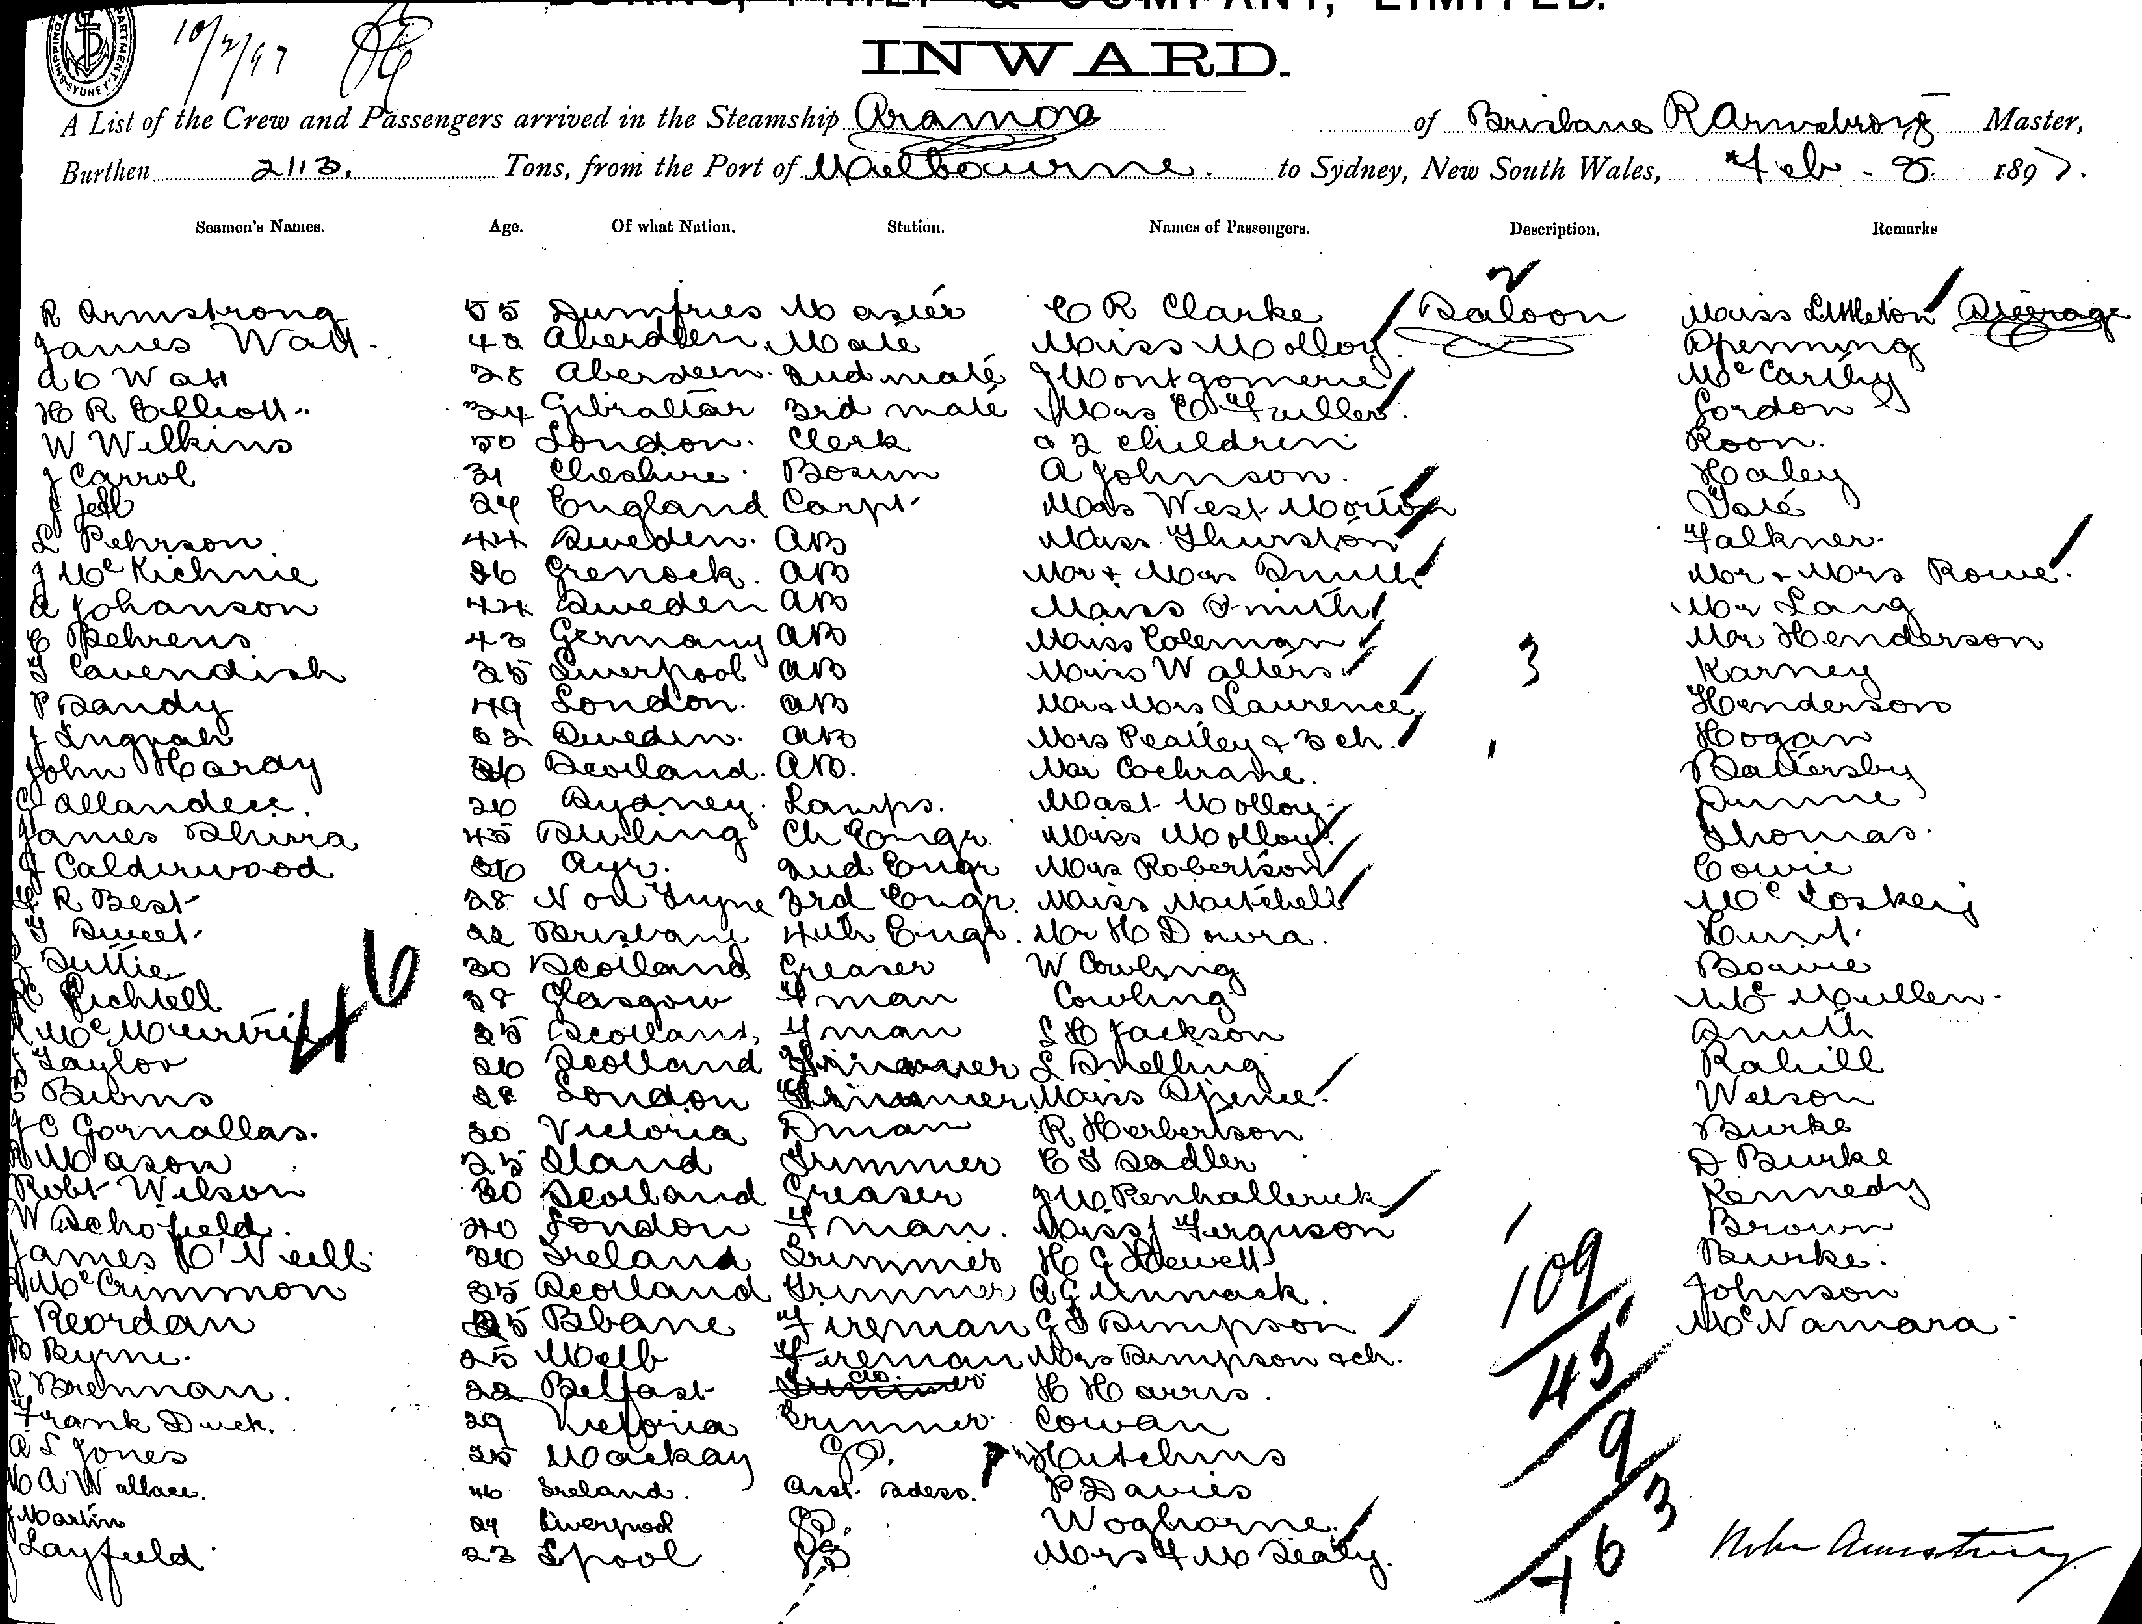 BURNS, PHILP & COMPANY, LIMITED.
10/2/97
INWARD.
A List of the Crew and Passengers arrived in the Steamship Aramac of Brisbane R Armstrong Master,
Burthen 2113. Tons, from the Port of Melbourne. to Sydney, New South Wales, Feb. 8 1897.
Seamen's Names. Age. Of what Nation. Station. Names of Passengers. Description. Remarks
2
R Armstrong 55 Dumfries Master C R Clarke Saloon Miss Littleton Steerage
James Watt. 42 Aberdeen. Mate Miss Molloy Spenning
28 Aberdeen. 2nd mate J Montgomerie McCarthy
H R Elliott. 34 Gibraltar 3rd mate Mrs E Fuller. Gordon
W Wilkins 50 London. Clerk & 2 children Roon.
J Carrol 31 Cheshire. Bosun A Johnson. Haley
J Jell 24 England Carpt. Mrs West Morton Tate
L Pehrson. 44 Sweden. AB Miss Thurston Falkner.
J McKichnie 36 Grenock. AB Mr & Mrs Smith Mr & Mrs Rowe.
A Johanson 44 Sweden AB Miss Smith Mr Lang
C Behrens 43 Germany AB Miss Coleman Mr Henderson
T Cavendish 25 Liverpool AB Miss Walters 3 Karney
P Bandy 49 London. AB Mr & Mrs Laurence Henderson
52 Sweden. AB Mrs Peatley & 3 ch. Hogan
John Hardy 26 Scotland. AB. Mr Cochrane. Battersby
20 Sydney. Lamps. Mast Molloy Dunne
James Shirra 45 Stirling Ch Engr. Miss Molloy Thomas.
J Calderwood 36 Ayr. 2nd Engr Mrs Robertson Cowie
R Best 28 N on Tyne 3rd Engr. Miss Mitchell McCoskery
T Sweet. 22 Brisbane 4th Engr. Mr H Dowra. Hunt.
Suttie 46 30 Scotland Greaser W Cowling Bowie
Richtell Glasgow Fman Cowling McMullen.
R McMurtrie 25 Scotland. Fman L H Jackson Smith
J Taylor 26 Scotland Trimmer L Snelling Rahill
Burns 28 London Trimmer Miss Spence. Welson
J C Gornallas. 30 Victoria Dman R Herbertson Burke
Mason 25 Trimmer C T Sadler D Burke
Robt Wilson 30 Scotland Greaser J W Penhallerick Kennedy
W Schofield. 40 London Fman. Miss J Ferguson Brown
James O'Neill 26 Ireland Trimmer H G Hewett Burke.
McCrimmon 25 Scotland Trimmer A G Unmack. 109 Johnson
J Reordan 25 Bbane Fireman G T Simpson McNamara
Byrne. 25 Melb Fireman Mrs Simpson & ch. 45
R Brennan. 22 Belfast do. H Harris.
Frank Duck. 29 Victoria Trimmer Cowan 9
A L Jones 25 Mackay Hutchins
A Wallace. 46 Ireland. Asst. Sdess. P Davies 3
J Martin 24 Liverpool Woghorne
Layfield 23 Lpool Mrs F M Sealy. 6